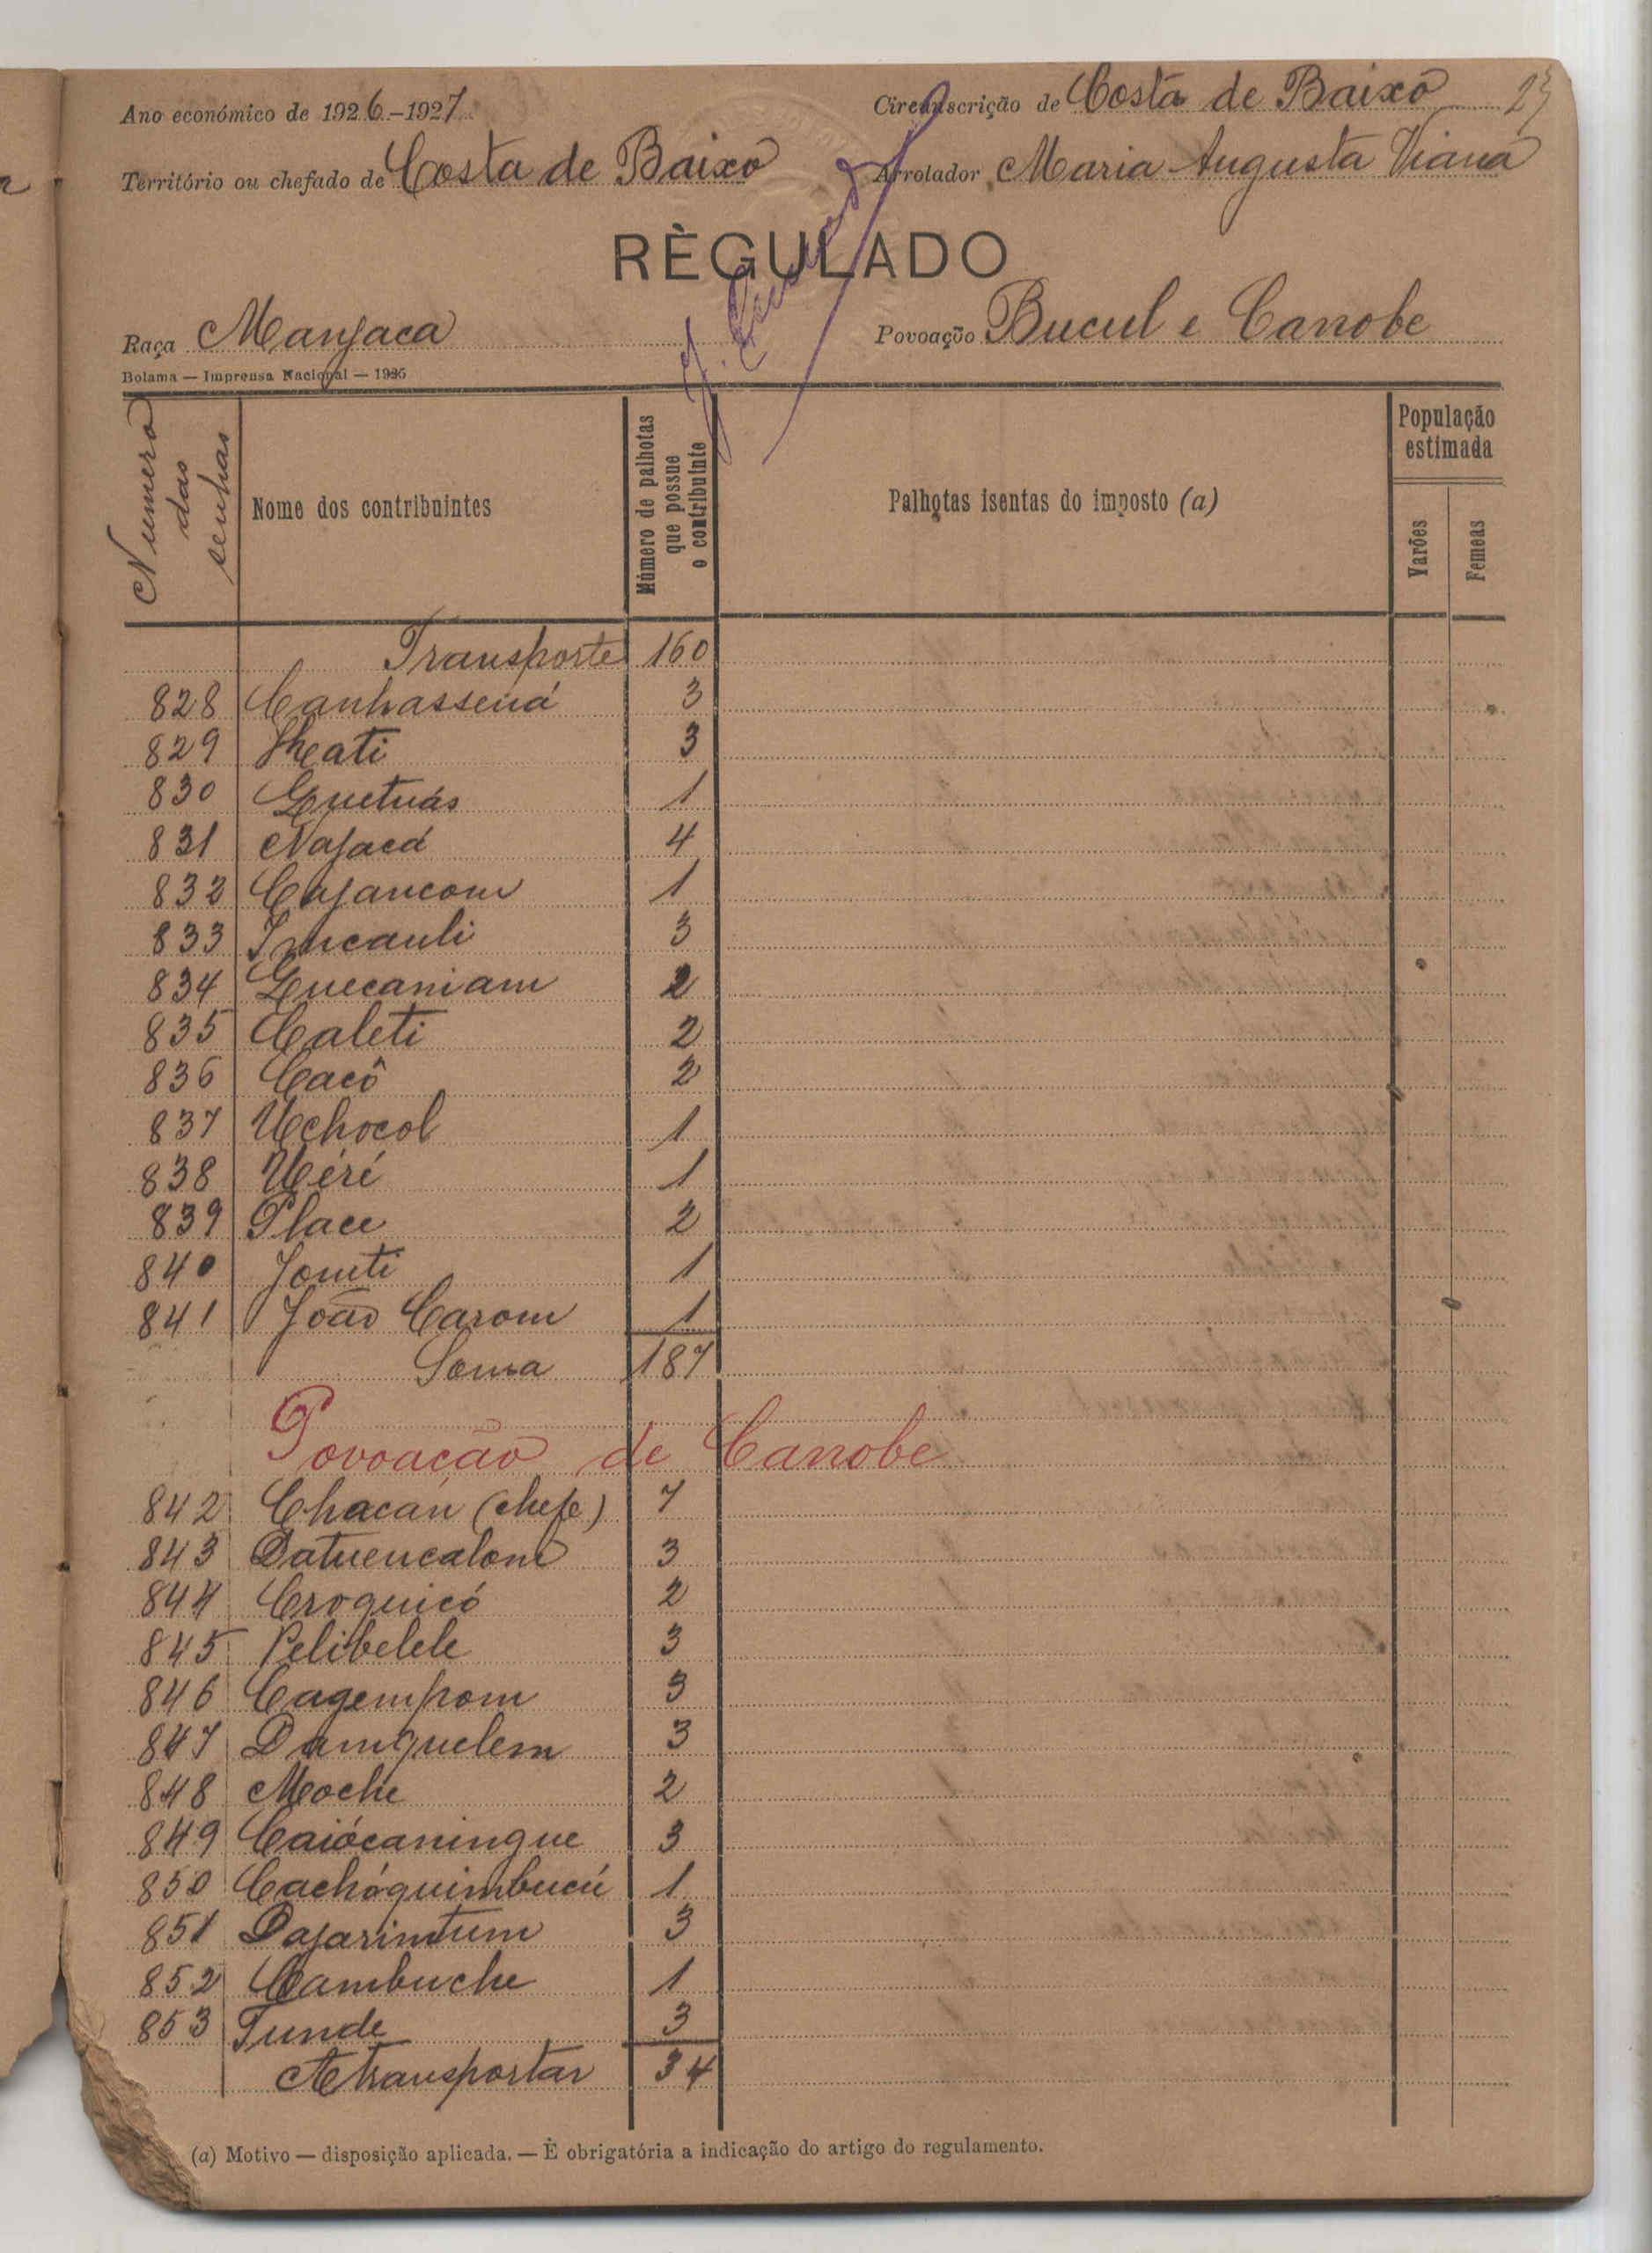 Ano económico de 1926-1927
Circunscrição de Costa de Baixo 23
Território ou chefado de Costa de Baixo
Arrolador Maria Augusta Viana
RÈGULADO
Raça Manjaca
Povoação Bucul e Canobe
Bolama — Imprensa Nacional — 1925
Numero das senhas
Nome dos contribuintes
Número de palhotas que possue o contribuinte
Palhotas isentas do imposto (a)
População estimada
Varões
Femeas
Transporte 160
828 Canhassená 3
829 3
830 Guetuás 1
831 Najacá 4
832 Cajancom 1
833 Incauli 3
834 Guecaniam 2
835 Caleti 2
836 Cacô 2
837 Uchocol 1
838 Uéré 1
839 Place 2
840 Jomti 1
841 João Carom 1
Soma 187
Povoação de Canobe
842 Chacan (chefe) 7
843 Datuencalom 3
844 Croquicó 2
845 Pelibelele 3
846 Cagempom 3
847 Damquelem 3
848 Moche 2
849 Caiócaningue 3
850 Cachóquimbucú 1
851 Dajarimtum 3
852 Cambuche 1
853 Tunde 3
A transportar 34
(a) Motivo — disposição aplicada. — É obrigatória a indicação do artigo do regulamento.